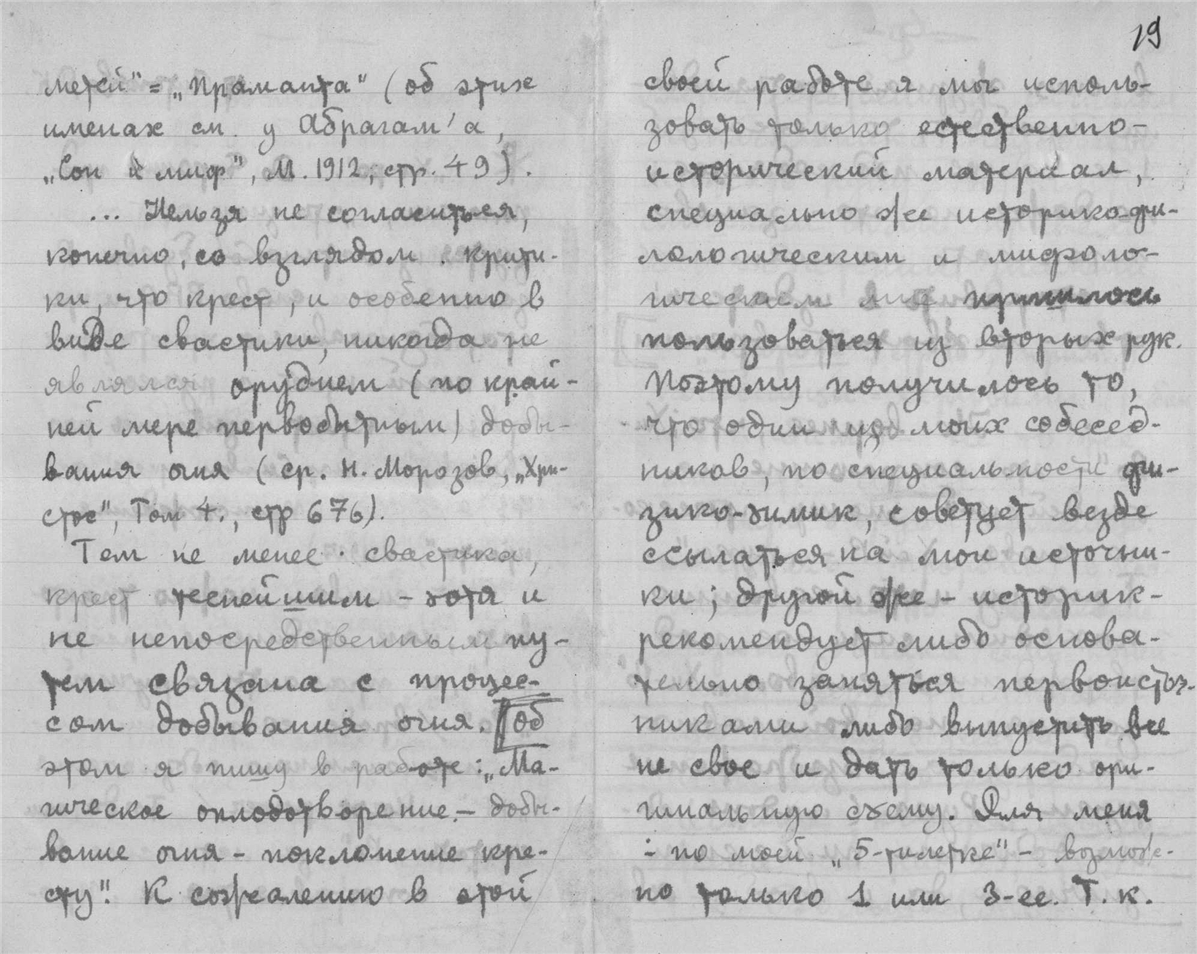 19
метей" = „Праманта" (об этих
именах см. у Абрагам'а,
„Сон и миф", М. 1912, стр. 49).
... Нельзя не согласиться,
конечно, со взглядом крити-
ки, что крест, и особенно в
виде свастики, никогда не
являлся орудием (по край-
ней мере первобытным) добы-
вания огня (ср. Н. Морозов, „Хри-
стос", Том 4., стр 676).
Тем не менее свастика,
крест теснейшим – хотя и
не непосредственным пу-
тем связана с процес-
сом добывания огня. [Об
этом я пишу в работе: „Ма-
гическое оплодотворение. – добы-
вание огня – поклонение кре-
сту". К сожалению в этой
своей работе я мог исполь-
зовать только естественно-
исторический материал,
специально же историкофи-
лологическим и мифоло-
гическим мне пришлось
пользоваться из вторых рук.
Поэтому получилось то,
что один из моих собесед-
ников, по специальности фи-
зико-химик, советует везде
ссылаться на мои источни-
ки; другой же – историк –
рекомендует либо основа-
тельно заняться первоисточ-
никами либо выпустить все
не свое и дать только ори-
гинальную схему. Для меня
– по моей „5-тилетке" – возмож-
но только 1 или 3-ее. Т. к.